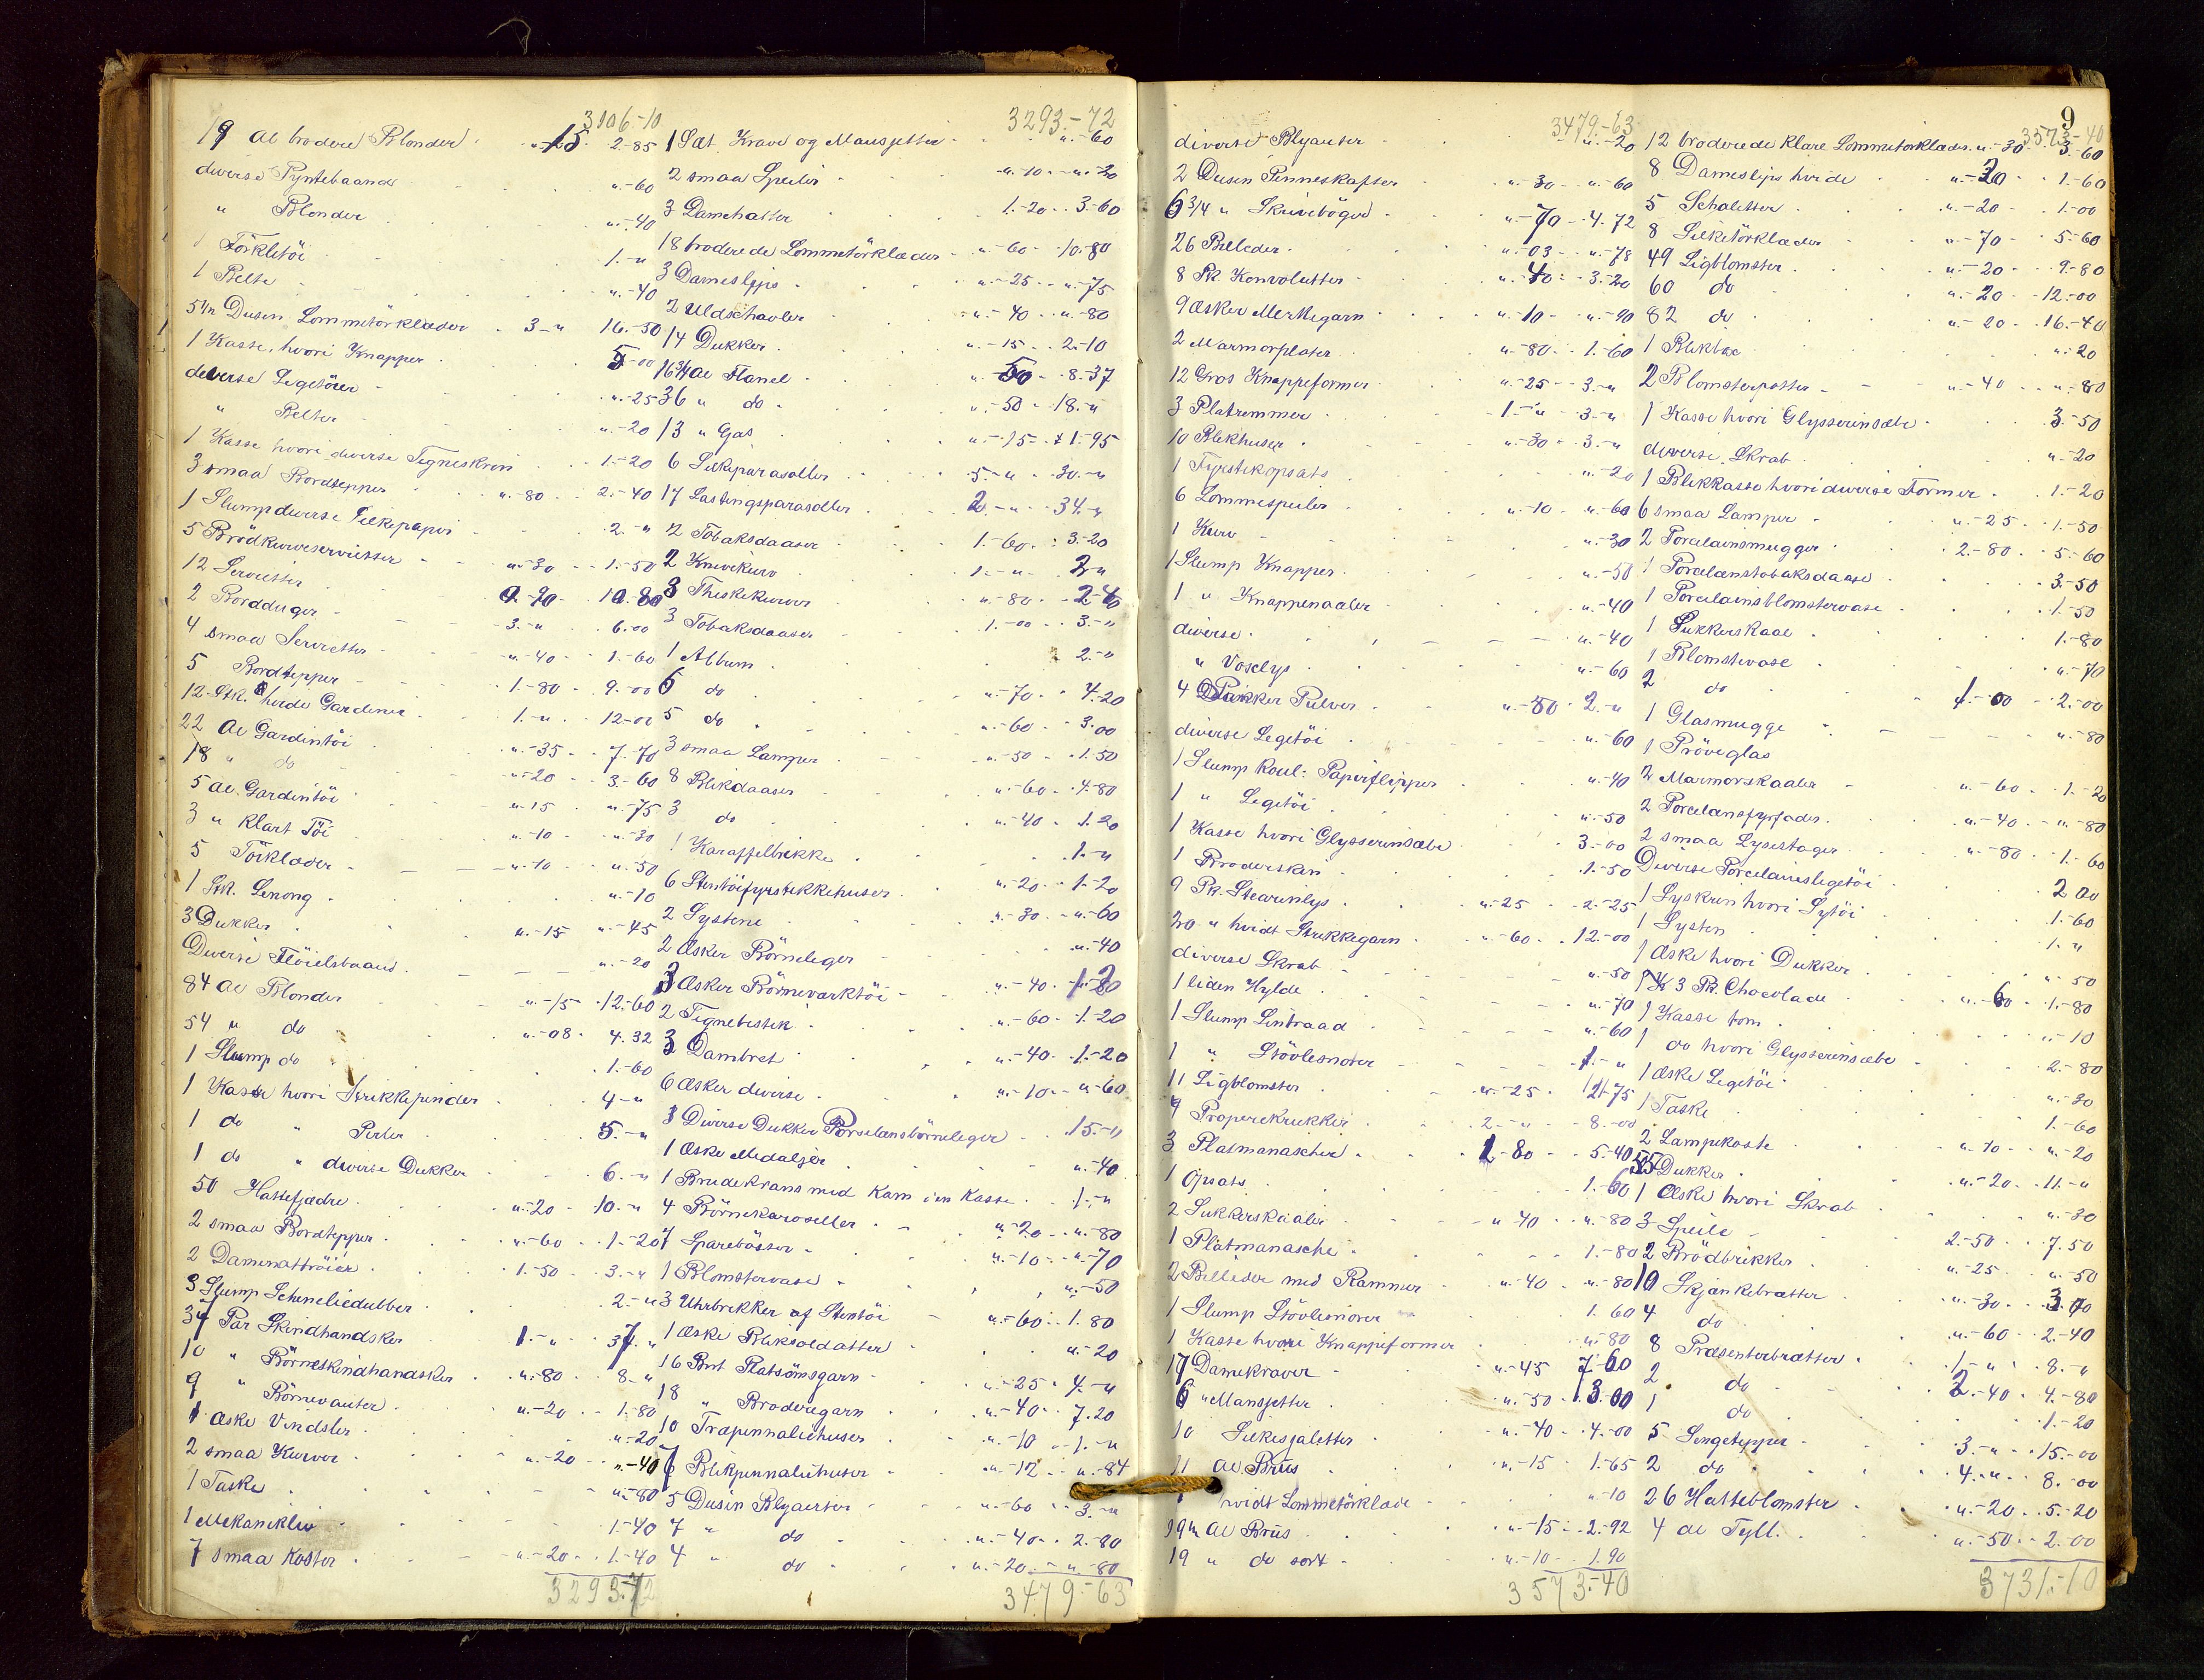 3106-10
19 al brodere Blonder " 15 2-85
diverse Pyntebaand " -60
" Blonder " -40
1 Förkletöi 1.- "
1 Belte " -40
5 1/2 Dusin Lommetörklæder 3- " 16.-50
1 Kasse, hvori Knapper 5-00
deverse Legetöier " -25
" Belter " -20
1 Kasse hvori diverse Tegneskrin 1.-20
3 smaa Bordtepper " -80 2.-40
1 Slump diverse Silkepapir 2.- "
5 Brödkurveservietter " -30 1.-50
12 Servietter 0-90 10.80
2 Bordduger 3.- " 6.00
4 smaa Servietter " -40 1.-60
5 Bordtepper 1.-80 9.-00
12 Stk. hvide Gardiner 1.- " 12-00
22 Al Gardintöi " -35 7.-70
18 " do " -20 3.-60
5 al. Gardintöi " -15 " -75
3 " klart Töi " -10 " -30
5 Törklæder " -10 " -50
1 Stk. Lenong " -10
3 Dukker " -15 " -45
Diverse Flöielsbaand " -20
84 al Blonder " -15 12.-60
54 " do " -08 4.32
1 Slump do 1.-60
1 Kasse hvori Strikkepinder 4- "
1 do " Perler 5.- "
1 do " diverse Dukker 6.- "
50 Hattefjædre " -20 10.- "
2 smaa Bordtepper " -60 1.-20
2 Damenattröier 1.-50 3.- "
3 Slump Scheneliedubber 2.- "
37 Par Skindhandsker 1.- " 37. "
10 " Börneskindhandsker " -80 8- "
9 " Börnevanter " -20 1.-80
1 Æske Vindsler " -20
2 smaa Kurver " -20 " -40
1 Taske " -80
1 Mekanikliv 1.-40
7 smaa Koster " -20 1.-40
3293.72
3293.-72
1 Sæt Krave og Mansjetter " -60
2 smaa Speiler " -10 " -20
3 Damehatter 1.-20 3.-60
18 broderede Lommetörklæder " -60 10.-80
3 Dameslips " -25 " -75
2 Uldschavler " -40 " -80
14 Dukker " -15 2.-10
16 3/4 al Flanel " -50 8.-37
36 " do " -50 18.- "
13 " Gas " -15 1.-95
6 Silkeparasoller 5- " 30.- "
17 Lastingsparasoller 2.- " 34.- "
2 Tobaksdaaser 1.-60 3.-20
2 Knivekurv 1.- " 2- "
3 Theskekurver " -80 2-40
3 Tobaksdaaser 1.-00 3.- "
1 Album 2.- "
6 do " -70 4.-20
5 do " -60 3.00
3 smaa Lamper " -50 1.50
8 Blikdaaser " -60 4.-80
3 do " -40 1.20
1 Karaffelbrikke 1.- "
6 Stentöifyrstikkehuser " -20 1-20
2 Systene " -30 " -60
2 Æsker Börneleger " -40
3 Æsker Börneværktöi " -40 1-20
2 Tegnebestik " -60 1.-20
3 Dambret " -40 1.-20
6 Æsker diverse " -10 " -60
3 Diverse Dukker Porselansbörneleger 15.- "
1 Æske Medaljer " -40
1 Brudekrans med Kam i en Kasse 1.- "
4 Börnekaroseller " -20 " -80
7 Sparebösser " -10 " -70
1 Blomstervase " -50
3 Uhrbrikker af Stentöi " -60 1.80
1 Æske Bliksoldatter " -20
16 Bnt Platsömsgarn " -25 4.- "
18 " Broderegarn " -40 7.20
10 Træpennaliehuser " -10 1.- "
7 Blikpennaliehuser " -12 " -84
5 Dusin Blyanter " -60 3.- "
7 " do " -40 2.-80
4 " do " -20 " -80
3479-63
3479.-63
diverse Blyanter " -20
2 Dusin Penneskafter " -30 " -60
6 3/4 " Skrivebøger " -70 4.72
26 Billeder " -03 " -78
8 Pk. Konvolutter " -40 3.-20
9 Æsker Merkegarn " -10 " -90
2 Marmorplater " -80 1.-60
12 Gros Knappeformer " -25 3.- "
3 Platremmer 1.- " 3.- "
10 Blekhuser " -30 3.- "
1 Fyrstikopsats " -20
6 Lommespeiler " -10 " -60
1 Kurv " -30
1 Slump Knapper " -50
1 " Knappenaaler " -40
diverse " -40
" Voxlys " -60
4 Pakker Pulver " -50 2.- "
diverse Legetöi " -60
1 Slump Koul: Papirflipper " -40
1 " Legetöi " -50
1 Kasse hvori Glysserinsæbe 3.-00
1 Broderskrin 1.-50
9 Pk. Stearinlys " -25 2-25
20 " hvidt Strikkegarn " -60 12.-00
diverse Skrab " -50
1 liden Hylde " -70
1 Slump Lintraad " -60
1 " Stövlesnorer 1.- "
11 Ligblomster " -25 2.75
4 Properekrukker 2.- " 8.-00
3 Platmanascher 1-80 5.-40
1 Opsats 1.-60
2 Sukkerskaaler " -40 " -80
1 Platmanasche 1.-80
2 Billeder med Rammer " -40 " -80
1 Slump Stövlesnorer 1.60
1 Kasse hvori Knappeformer " -80
17 Damekraver " -45 7.60
6 " Mansjetter " -50 3.00
10 Silkesjaletter " -40 4.-00
11 al. Briis " -15 1.-65
1 hvidt Lommetörklæde " -10
19 1/2 al Briis " -15 2.-92
19 " do sort " -10 1.90
3573.-40
9
3573-40
12 broderede klare Lommetörklæder " -30 3.-60
8 Dameslips hvide " -20 1.-60
5 Schaletter " -20 1.-00
8 Silketörklæder " -70 5.-60
49 Ligblomster " -20 9.-80
60 do " -20 12.-00
82 do " -20 16.-40
1 Blikbæ " -20
2 Blomsterpotter " -40 " -80
1 Kasse hvori Glysserinsæbe 3.-50
diverse Skrab " -20
1 Blikkasse hvori diverse Former 1.-20
6 smaa Lamper " -25 1.-50
2 Porcelainsmugger 2.-80 5.-60
1 Porcelænstobaksdaase 3.-50
1 Porcelainsblomstervase 1.-50
1 Sukkerskaal 1.-80
1 Blomstervase " -70
2 do 1-00 2.-00
1 Glasmugge " -80
1 Pröveglas
2 Marmorskaaler " -60 1.-20
2 Porcelænsfyrfade " -40 " -80
2 smaa Lysestager " -80 1.-60
Diverse Porcelainslegetöi 2 00
1 Syskrin hvori Sytöi 1.-60
1 Systen 1.- "
1 Æske hvori Dukker " -50
1 K 3 Pk. Chocolade " -60 1.-80
1 Kasse tom " -10
1 do hvori Glysserinsæbe 2.-80
1 Æske Legetöi " -30
1 Taske 1.-60
2 Lampekoste " -10 " -20
55 Dukker " -20 11.- "
1 Æske hvori Skrab " -30
3 Speile 2.-50 7.50
2 Brödbrikker " -25 " -50
10 Skjænkebrætter " -30 3.00
4 do " -60 2.-40
8 Præsenterbrætter 1.- " 8.- "
2 do 2.-40 4.-80
1 do 1.-20
5 Sengetepper 3.- " 15.-00
2 do 4.- " 8.-00
26 Hatteblomster " -20 5.-20
4 al Tyll " -50 2.-00
3731.-10